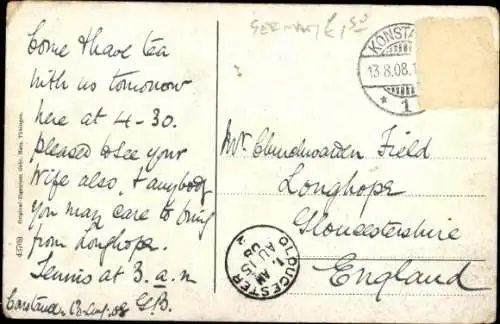 Come & have tea
with us tomorrow
here at 4-30.
pleased to see your
wife also, & anybody
you may care to bring
from Longhope.
Tennis at 3.
Constance 13 Aug. 08 G.B.
43769 Original-Eigentum Gebr. Metz, Tübingen.
GERMANY £1.50
KONSTA
13.8.08.1
* 1
Mr. Churchwarden Field
Longhope
Gloucestershire
England
GLOUCESTER
1 AM
AU 15
08
2